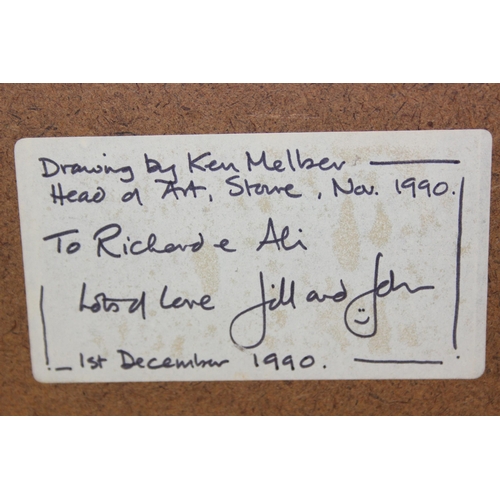 Drawing by Ken Melber
Head of Art, Stowe, Nov. 1990.
To Richard e Ali
Lots of Love Jill and John
1st December 1990.